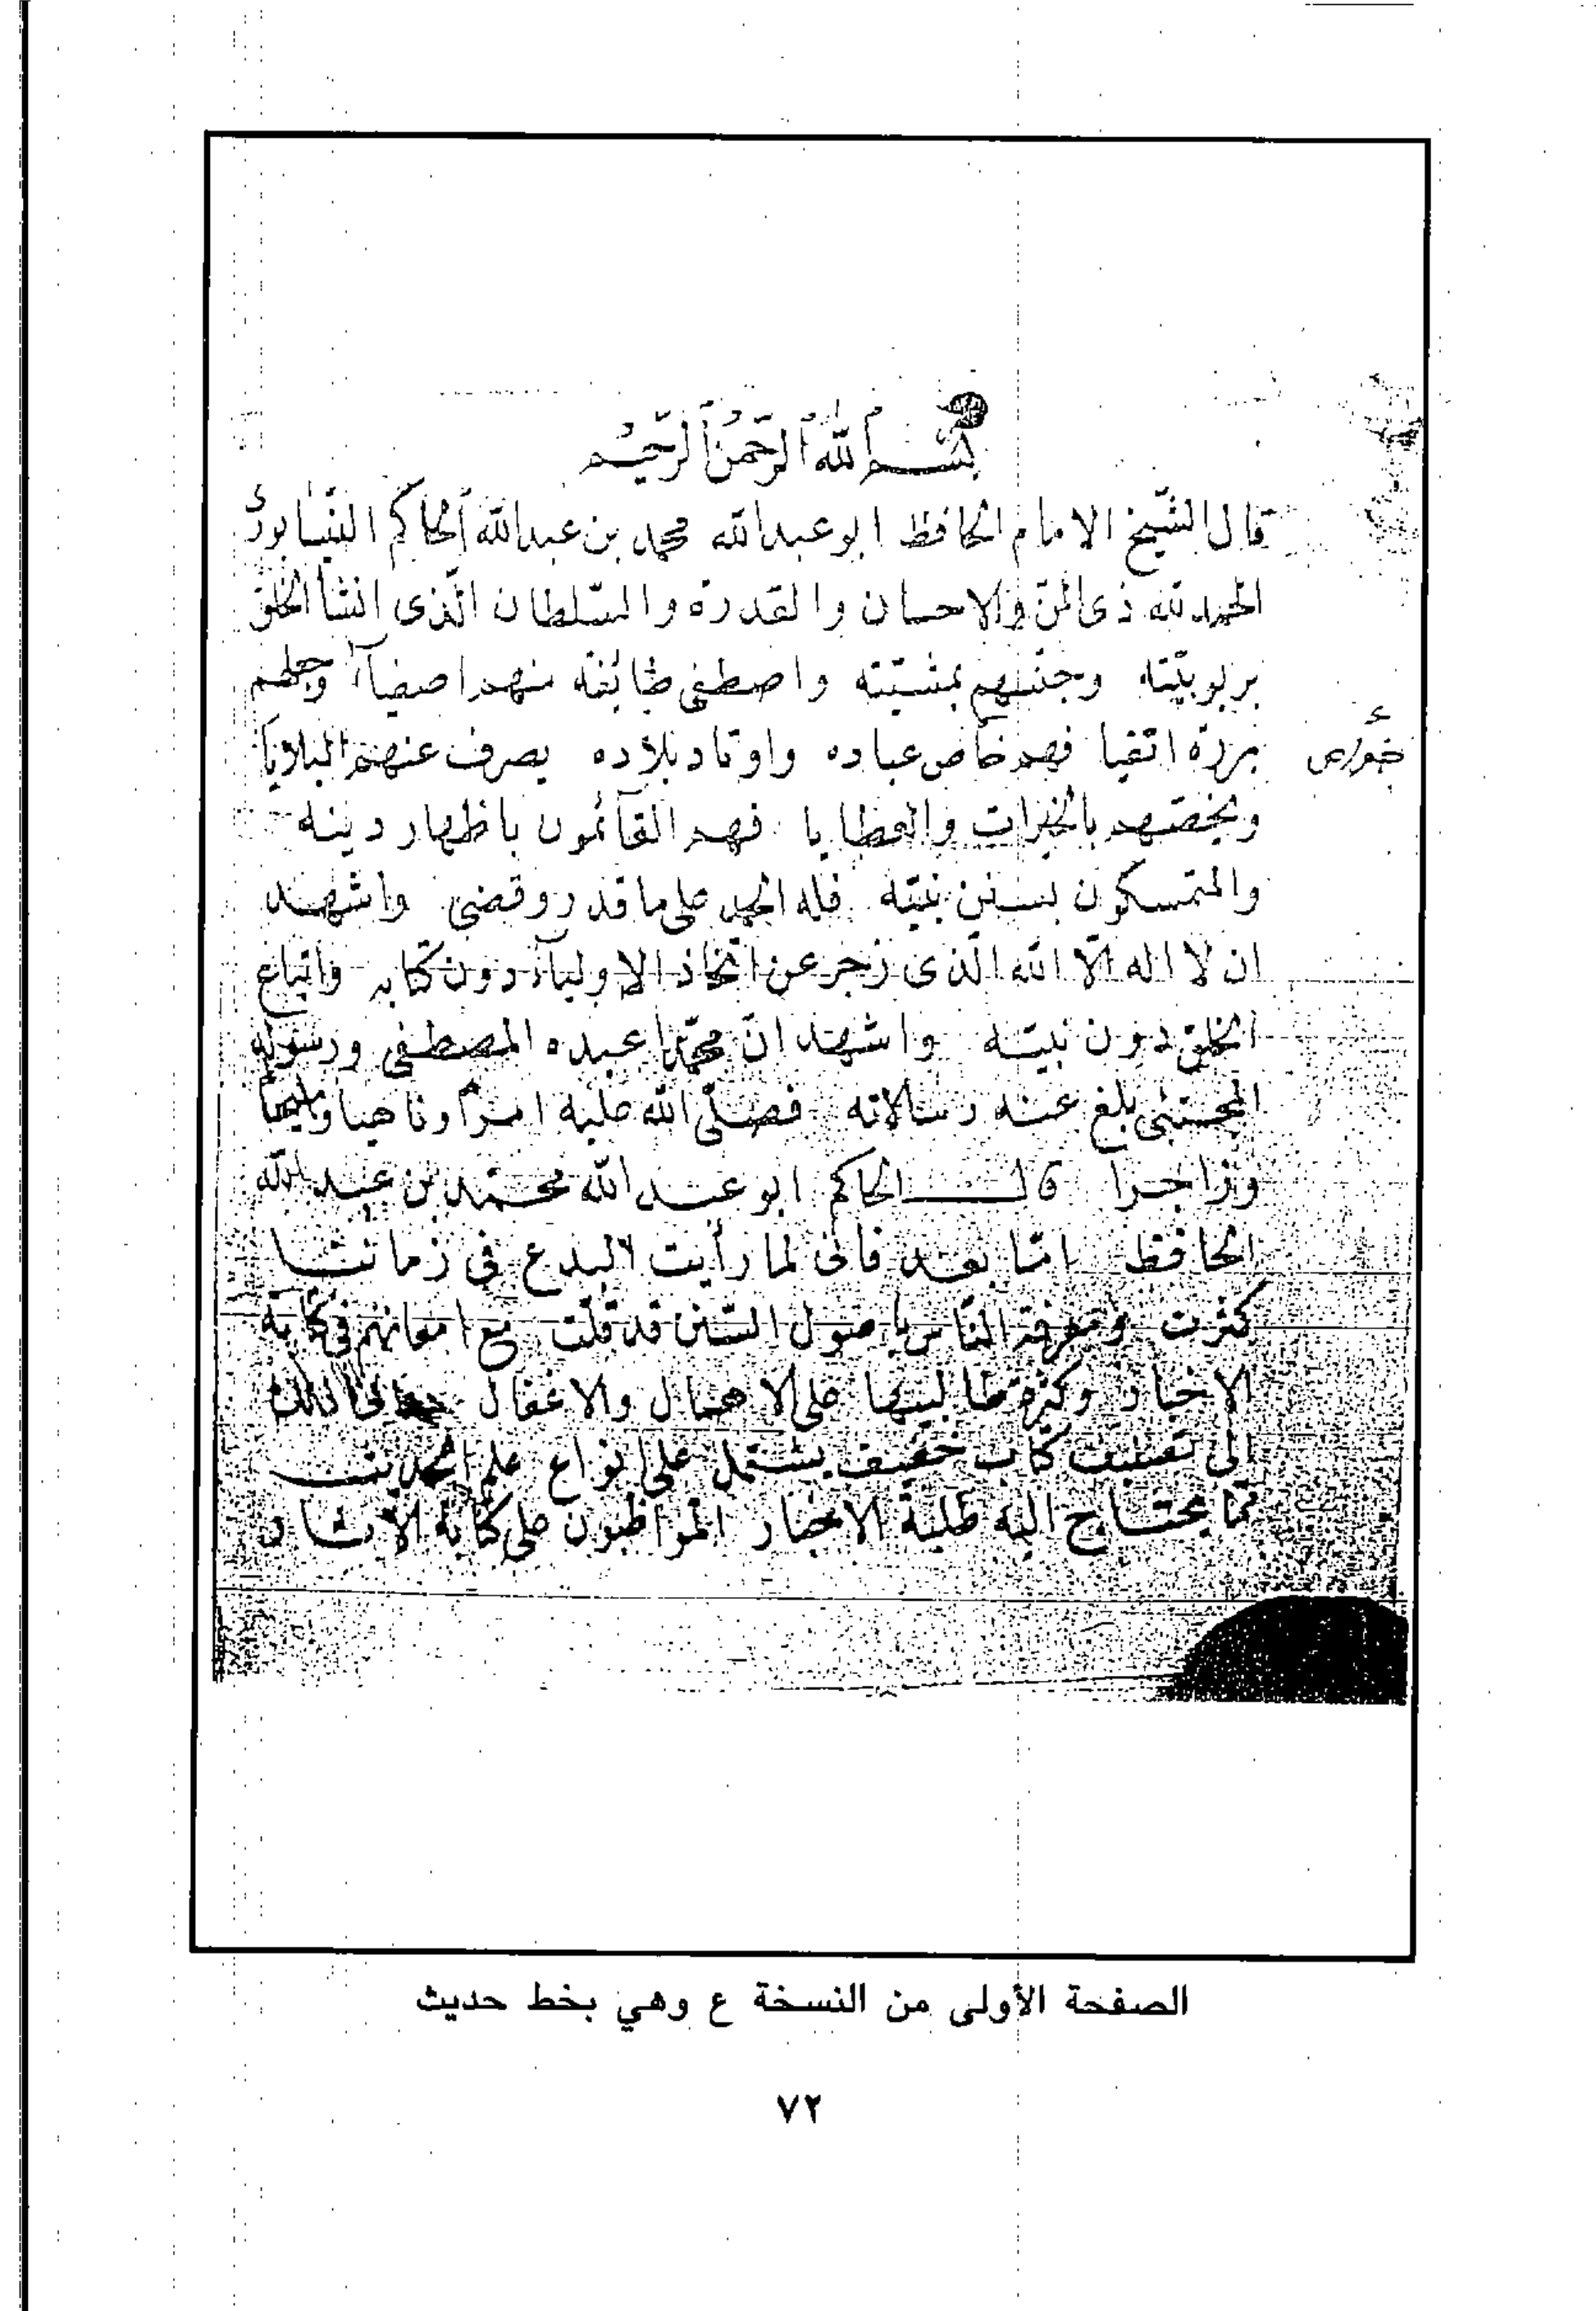 بسم الله الرحمن الرحيم
قال الشيخ الامام الحافظ ابو عبدالله محمد بن عبدالله الحاكم النيسابوري
الحمد لله ذى المن والاحسان والقدرة والسلطان الذى انشأ الخلق
بربوبيته وجنسهم بمشيته واصطفى طائفة منهم اصفيآء وجعلهم
بررة اتقيا فهم خاص عباده واوتاد بلاده يصرف عنهم البلايا
ويخصهم بالخيرات والعطايا فهم القآئمون باظهار دينه
والمتمسكون بسنن نبيه فله الحمد على ما قدر وقضى واشهد
ان لا اله الّا الله الّذى زجر عن اتخاذ الاوليآء دون كتابه واتباع
الخلق دون نبيه واشهد انّ محمّدا عبده المصطفى ورسوله
المجتبى بلغ عنه رسالاته فصلّى الله عليه امرا وناهيا ومبيحا
وزاجرا قال الحاكم ابو عبد الله محمّد بن عبد الله
الحافظ امّا بعد فانى لما رأيت البدع فى زماننا
كثرت ومعرفة النّاس باصول السّنن قد قلّت مع امعانهم فى كتابة
الاخبار وكثرة طالبيها على الاهمال والاغفال دعانى ذلك
الى تصنيف كتاب خفيف يشتمل على انواع علم الحديث
ممّا يحتاج اليه طلبة الاخبار المواظبون على كتابة الاثار
الصفحة الأولى من النسخة ع وهي بخط حديث
٧٢